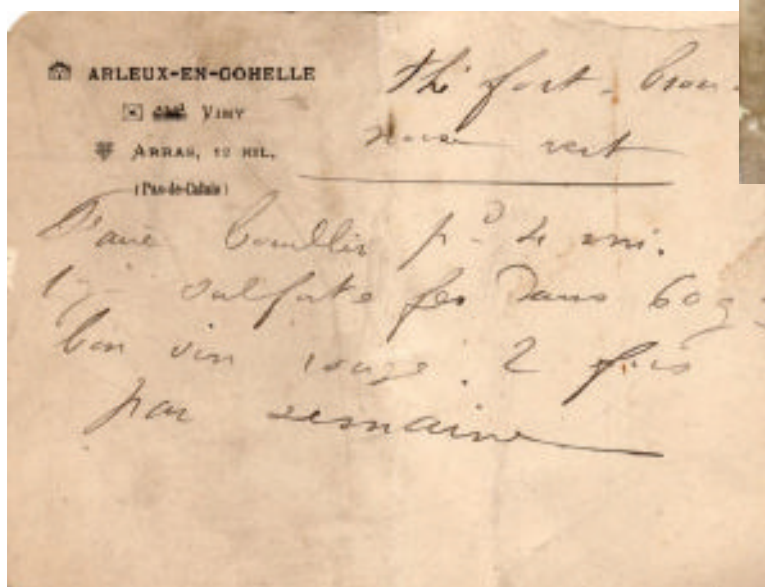 ARLEUX-EN-GOHELLE
VIMY
ARRAS, 12 KIL.
(Pas-de-Calais)
thé fort - brou -
noix vert
Faire bouillir pd 4 mi.
1 g sulfate fer dans 60 g
bon vin rouge. 2 fois
par semaine